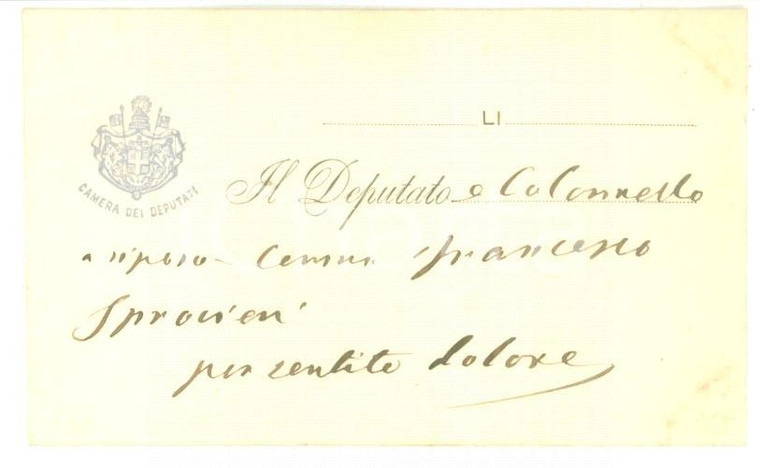 LI
CAMERA DEI DEPUTATI
Il Deputato e Colonnello
a riposo - Comm. Francesco
Sprovieri
per sentito dolore